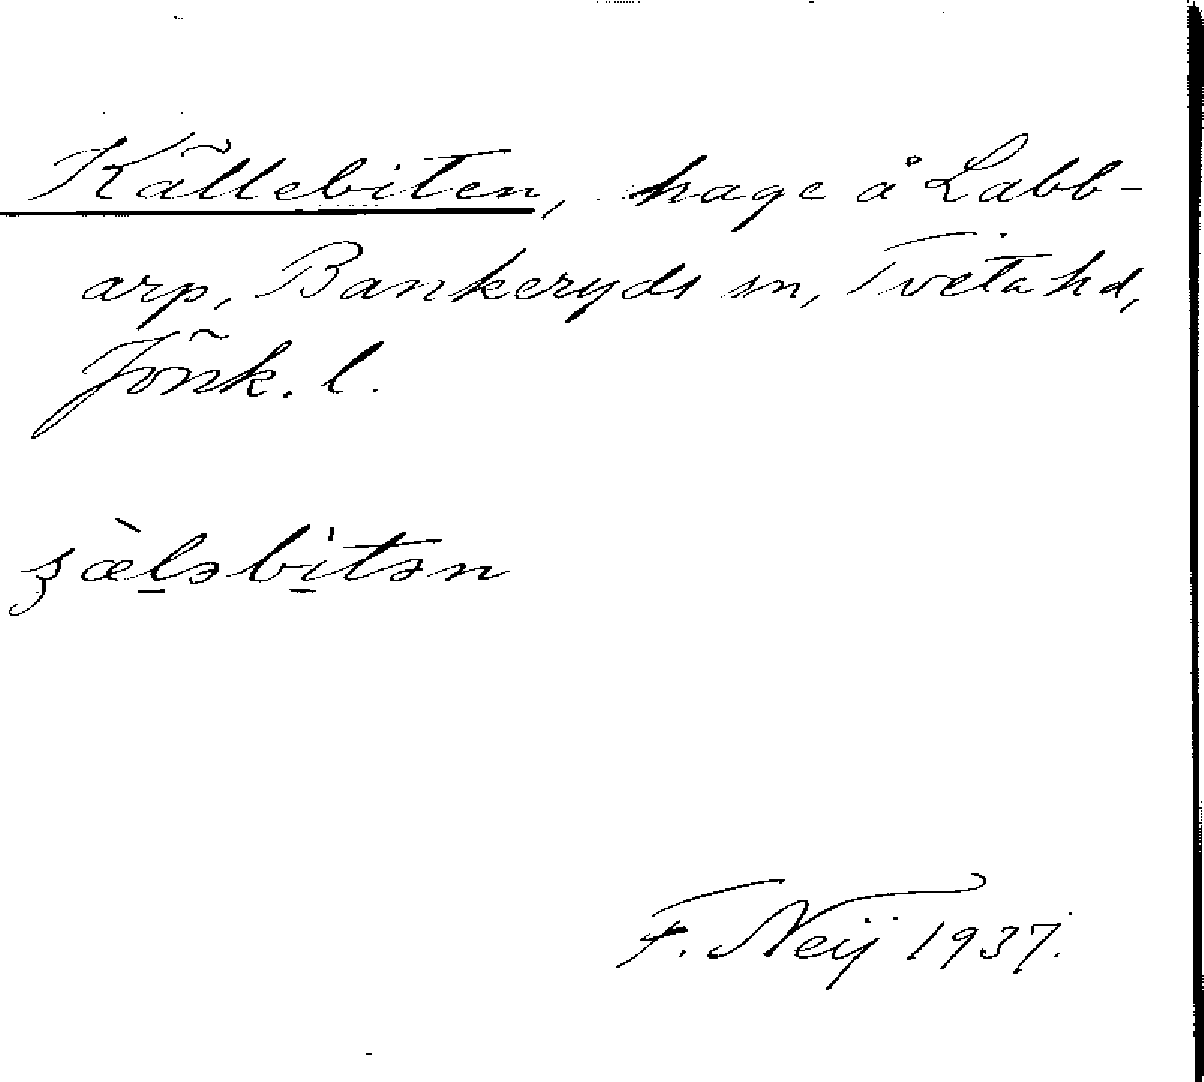 Källebiten, hage å Labb-
arp, Bankeryds sn, Tveta hd,
Jönk. l.
ʒæ̀l̠əbi̠tən
F. Neij 1937.